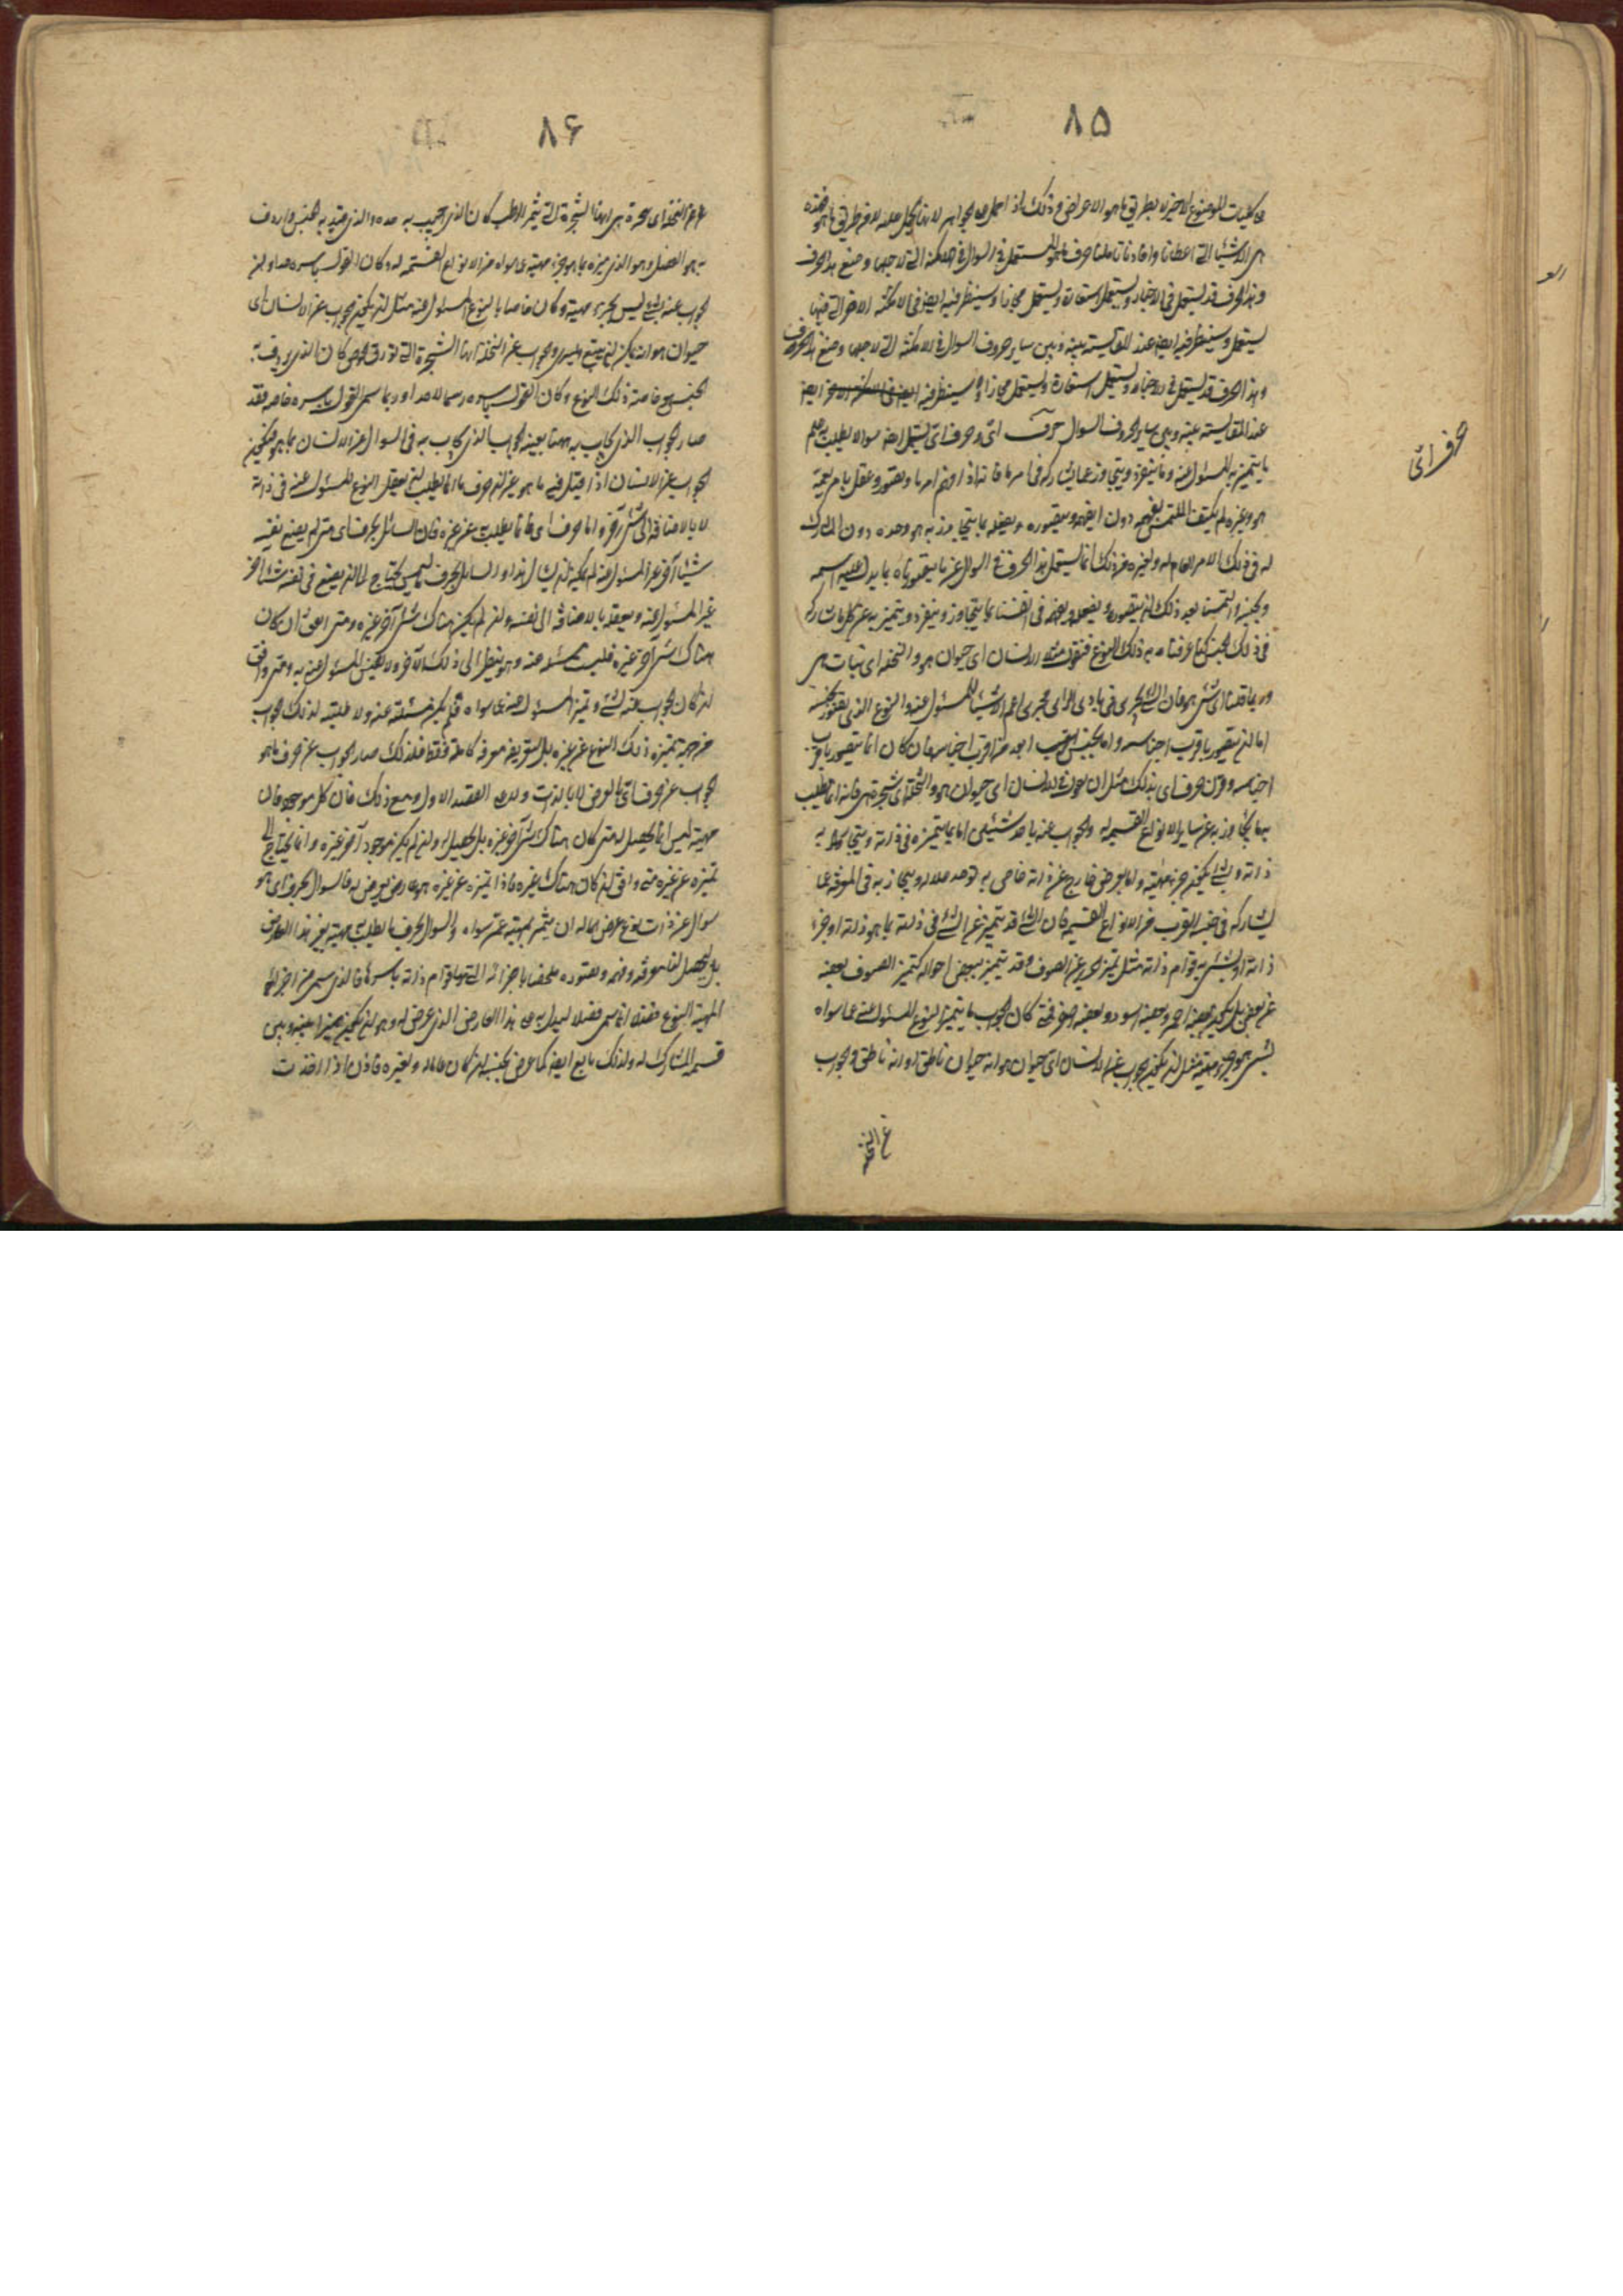 ٨۵
هى الاشياء التى اعطانا وافادنا تاملنا حرف ما هو المستعمل فى السوال فى الامكنة التى لاجلها وضع هذا الحرف
وهذا الحرف قد يستعمل فى الاخبار ويستعمل استعارة ويستعمل مجازا وسينظر فيه ايضا فى الامكنة الاخر التى فيها
يستعمل وسينظر فيه ايضا عند المقايسة بينه وبين ساير حروف السوال فى الامكنة التى لاجلها وضع هذا الحرف
وهذا الحرف قد يستعمل فى الاخبار ويستعمل استعارة ويستعمل مجازا وسينظر فيه ايضا
عند المقايسة بينه وبين ساير حروف السوال حرف اى وحرف اى يستعمل ايضا سوالا يطلب به علم
ما يتميز به المسئول عنه وما ينفرد به وينحاز عما يشاركه فى امر ما فانه اذا فهم امر ما وتصور وعقل بامر يعمه
هو وغيره لم يكتف الملتمس تفهمه دون ان يفهمه ويتصوره ويعقله بما ينحاز به هو وحده دون المشارك
له فى ذلك الامر العام له ولغيره من ذلك انا نستعمل هذا الحرف فى السوال عما تصورناه بما يدل عليه اسمه
وبجنسه والتمسنا بعد ذلك ان نتصوره ونعقله ونفهمه فى انفسنا بما ينحاز وينفرد ويتميز به عن كل ما شاركه
فى ذلك الجنس كنا عرفناه به ذلك النوع فنقول مثلا الانسان اى حيوان هو والنخلة اى نبات هى
وربما قلنا اى شى هو فان الشى يجرى فى بادى الراى مجرى اعم الاشياء للمسئول عنه والنوع الذى يتصور بجنسه
اما ان يتصور باقرب اجناسه واما بجنس ابعد من اقرب اجناسه فان كان انما يتصور باقرب
اجناسه وقرن حرف اى بذلك مثل ان نقول فى الانسان اى حيوان هو والنخلة اى شجرة هى فانه انما يطلب
به ما ينحاز به عن ساير الانواع القسيمة له والجواب عنه باحد شيئين اما بما يتميز به فى ذاته وينحاز به
ذاته وبشى يكون جزء ماهيته واما بعرض خارج عن ذاته خاص به
يشاركه فى جنسه القريب من الانواع القسيمة فان الشى قد يتميز عن الشى فى ذاته بما هو ذاته او جزء
ذاته او بشى به قوام ذاته مثل تميز الحرير عن الصوف وقد يتميز ببعض احواله كتميز الصوف بعضه
عن بعض بان يكون بعضه احمر وبعضه اسود وبعضه اصفر فمتى كان الجواب بما يتميز النوع المسئول عنه عما سواه
بشى هو جزء ماهيته مثل ان يكون الجواب عن الانسان اى حيوان هو انه حيوان ناطق او انه ناطق والجواب
عن النخلة
حرف اى
٨۶
عن النخلة اى شجرة هى انها الشجرة التى تثمر الرطب كان الذى اجيب به حده والذى قيد به جنسه واردف
به هو الفصل وهو الذى ميزه بما هو جزء ماهيته عما سواه من الانواع القسيمة له وكان القول باسره حدا وان
اجيب عنه بشى ليس بجزء ماهيته وكان خاصا بالنوع المسئول عنه مثل ان يكون الجواب عن الانسان اى
حيوان هو انه يمكن ان يبيع ويشترى والجواب عن النخلة انها الشجرة التى تورق الخوص كان الذى يردف به
الجنس هو خاصة ذلك النوع وكان القول باسره رسما لا حدا وربما سمى القول باسره خاصة فقد
صار الجواب الذى يجاب به ههنا بعينه الجواب الذى يجاب به فى السوال عن الانسان بما هو فيكون
الجواب عن الانسان اذا قيل فيه ما هو غير ان حرف ما انما يطلب ان يعقل النوع المسئول عنه فى ذاته
لا بالاضافة الى شى آخر واما حرف اى فانما يطلب تميزه عن غيره فان السائل بحرف اى متى لم يضع نفسه
شيئا آخر غير المسئول عنه لم يمكنه ان يسال هذا السوال والسائل بحرف ما ليس يحتاج الى ان يضع فى نفسه شيئا آخر
غير المسئول عنه ويعقله بالاضافة الى نفسه وان لم يكن هناك شى آخر غيره ومتى اتفق ان كان
هناك شى آخر غيره فليست مسئلته عنه وهو ينظر الى ذلك الآخر ولا يقيس المسئول عنه به ومتى وافق
ان كان الجواب عنه بشى وتميز المسئول عنه عما سواه فلم يكن مسئلته عنه ولا طلبته لذلك الجواب
من جهة تميز ذلك النوع عن غيره بل لتعريف معرفة كاملة فقط فلذلك صار الجواب عن حرف ما هو
الجواب عن حرف اى بالعرض لا بالذات وعلى القصد الاول ومع ذلك فان كل موجود فان
ماهيته ليس انما يحصل له متى كان هناك شى آخر غيره بل تحصل له وان لم يكن موجود آخر غيره وانما يحتاج الى
تميزه عن غيره متى وافق ان كان هناك غيره فاذا تميزه عن غيره هو عارض يعرض له فالسوال بحرف اى هو
سوال عن ذات نوع عرض لها ان يتميز بماهيته عن سواه والسوال بحرف ما يطلب ماهيته بغير هذا العارض
بل ليحصل لنا معرفته وفهمه وتصوره ملخصا باجزائه التى بها قوام ذاته باسرها فالذى سمى من اجزاء
الماهية النوع فصلا انما سمى فصلا ليدل به على هذا العارض الذى عرض له وهو ان يكون مميزا بينه وبين
قسيمه المشارك له ولذلك تابع ايضا كما عرض لجنسه ان كان عاما له ولغيره فاذن اذا اخذت